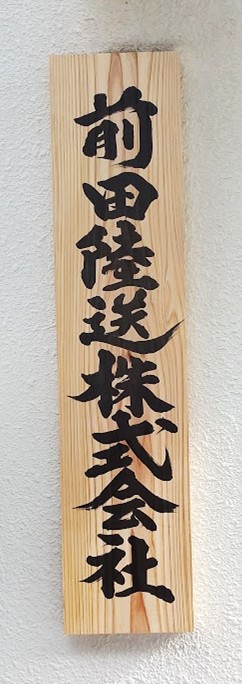 前田陸送株式会社